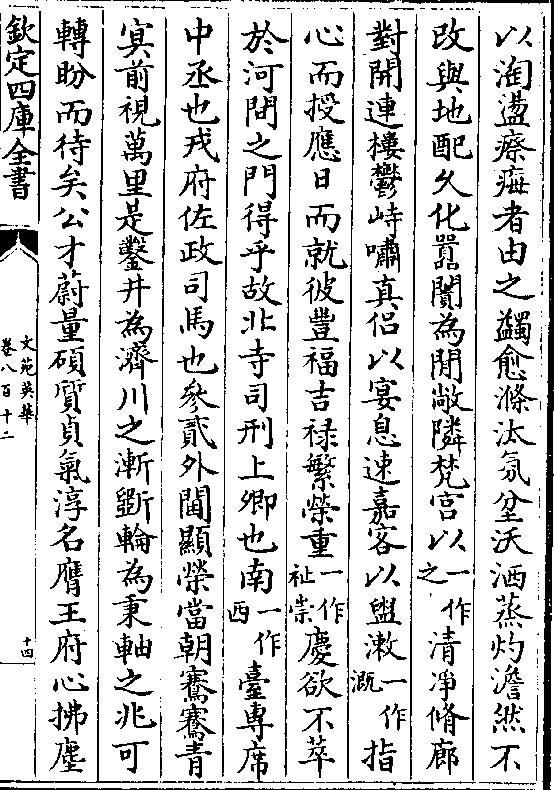 以淘盪瘵痗者由之蠲愈滌汰氛坌沃洒蒸灼澹然不
改與地配久化囂闤為閒敞隣梵宫以一作之清淨脩廊
對開連樓鬱峙嘯真侣以宴息速嘉客以盥漱一作溉指
心而授應日而就彼豐福吉禄繁榮重一作祉崇慶欲不萃
於河間之門得乎故北寺司刑上卿也南一作西臺專席
中丞也戎府佐政司馬也參貳外閫顯榮當朝騫騫青
㝠前視萬里是鑿井為濟川之漸斵輪為秉軸之兆可
轉盼而待矣公才蔚量碩質貞氣淳名膺王府心拂塵
欽定四庫全書
文苑英華
卷八百十二
十四